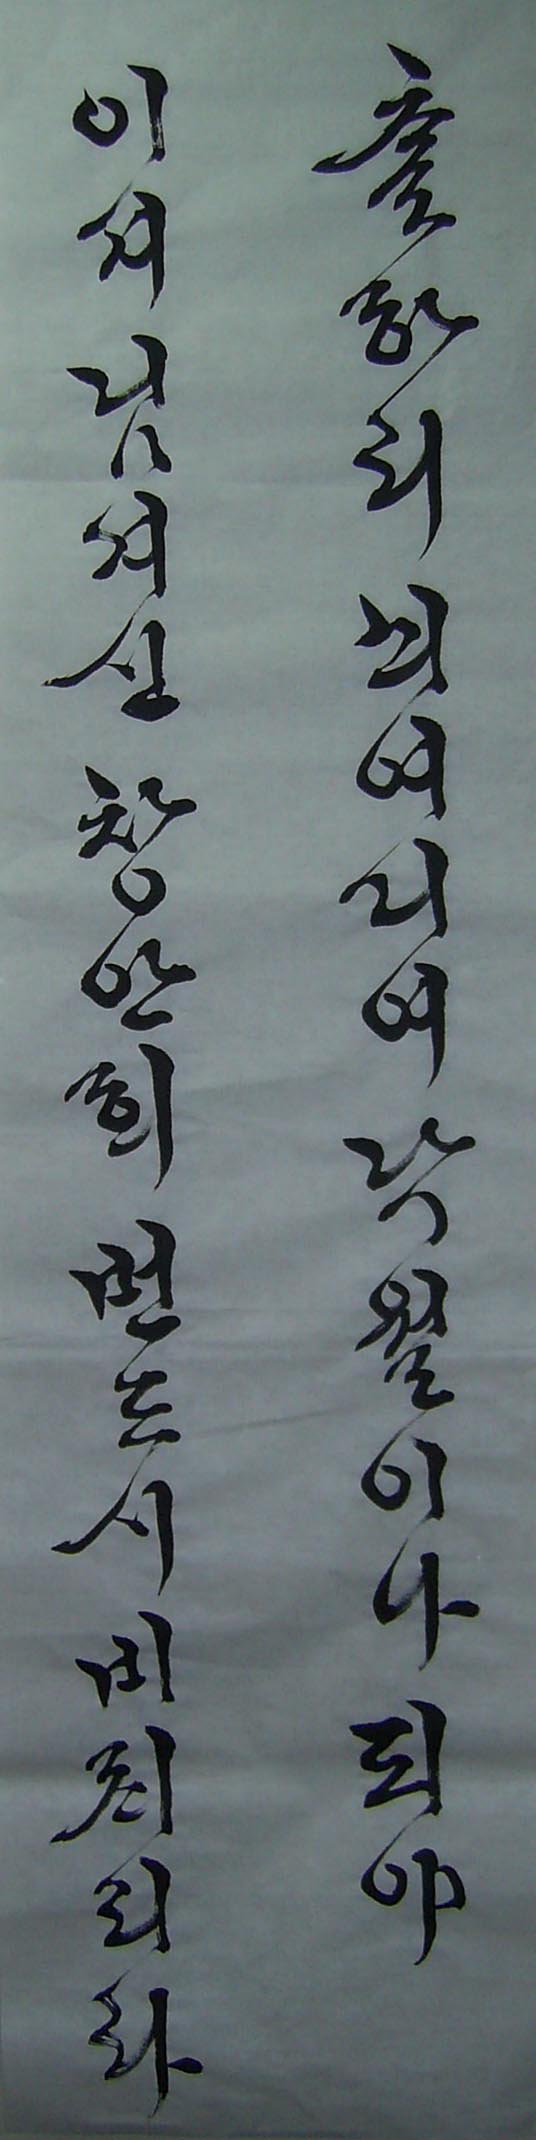 ᄎᆞᆯ하리 싀여디여 낙월이나 되야
이셔 님 겨신 창안희 번드시 비최리라